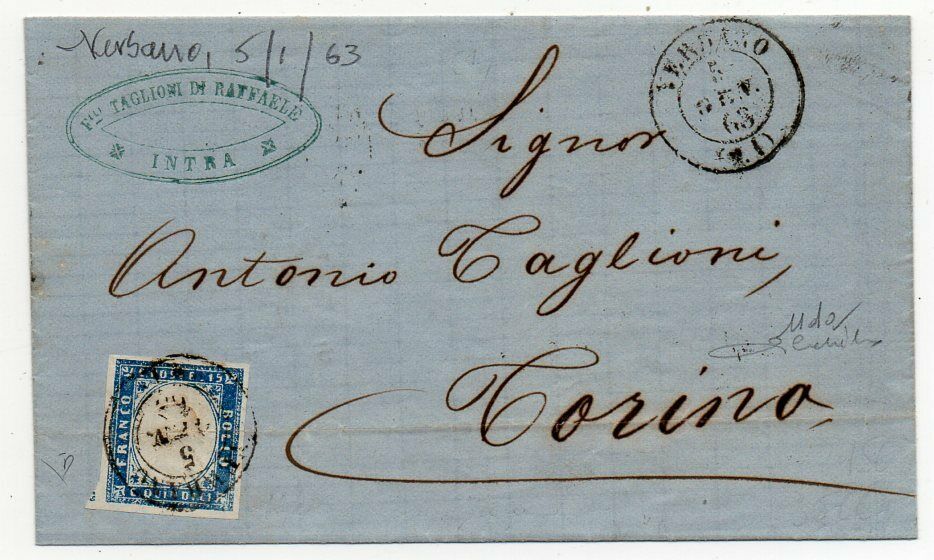 Verbano, 5/1/63
F.lli TAGLIONI DI RAFFAELE
INTRA
VERBANO
5
GEN
63
Signor
Antonio Taglioni,
Torino
C. QUINDICI
FRANCO
BOLLO
POSTE 15
5